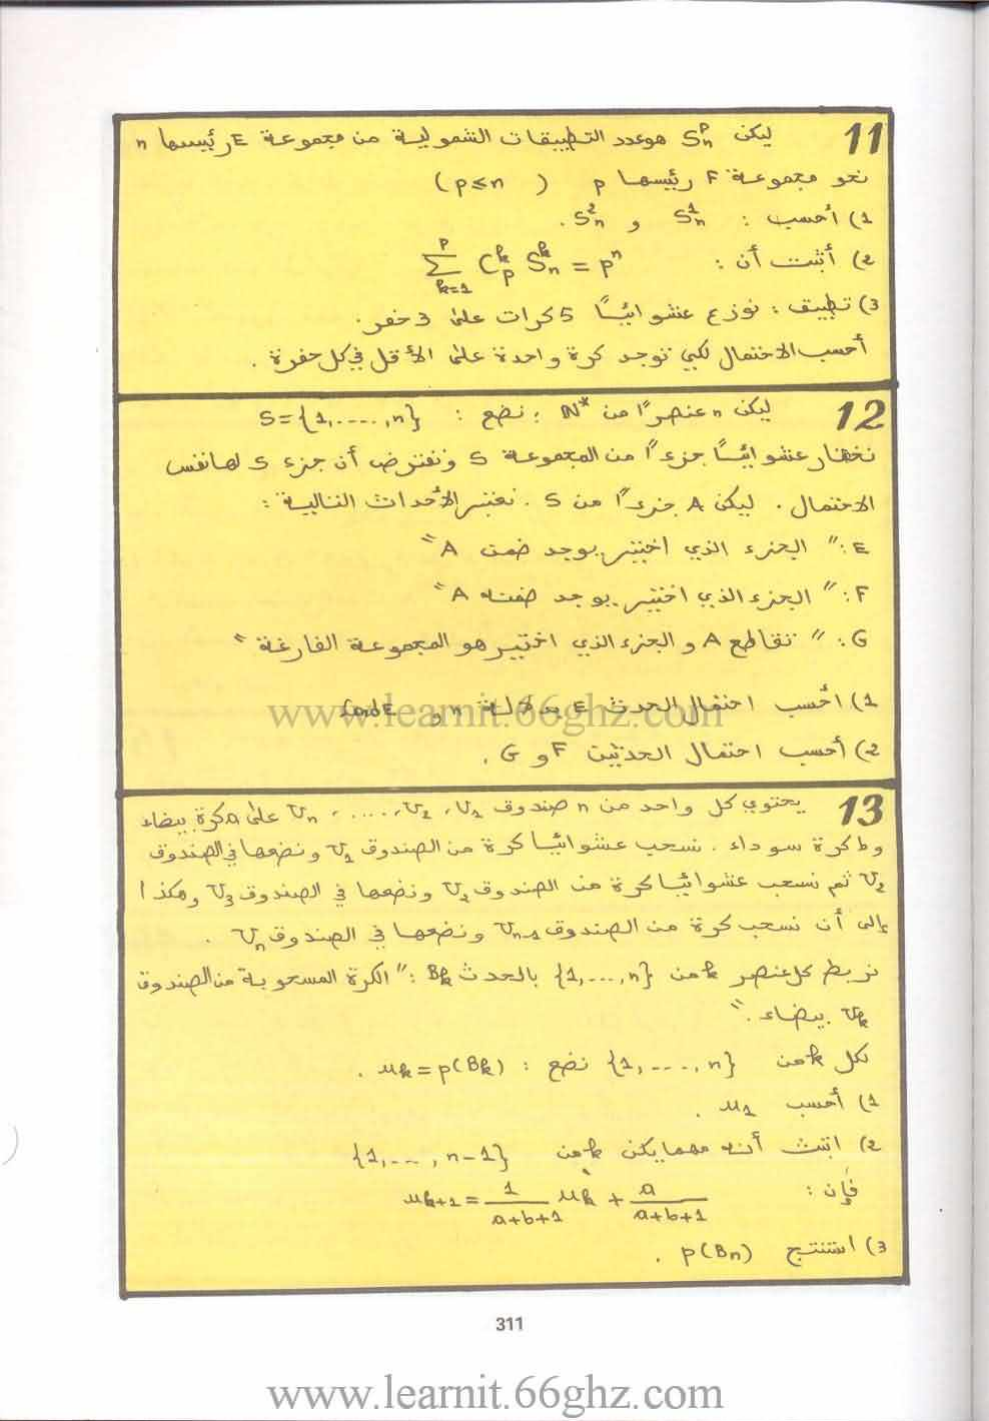 11 ليكن S_n^p هو عدد التطبيقات الشمولية من مجموعة E رئيسها n
نحو مجموعة F رئيسها p ( p≤n )
1) أحسب : S_n^1 و S_n^2 .
2) أثبت أن : \sum_{k=1}^{p} C_p^k S_n^k = p^n
3) تطبيق : نوزع عشوائيًا 5 كرات على 3 حفر .
أحسب الاحتمال لكي توجد كرة واحدة على الأقل في كل حفرة .
12 ليكن n عنصرًا من N* ; نضع : S={1,....,n}
نختار عشوائيًا جزءًا من المجموعة S ونفترض أن جزء S لها نفس
الاحتمال . ليكن A جزءًا من S . نعتبر الأحداث التالية :
E : " الجزء الذي اختير يوجد ضمن A "
F : " الجزء الذي اختير يوجد ضمنه A "
G : " تقاطع A و الجزء الذي اختير هو المجموعة الفارغة "
1) أحسب احتمال الحدث E بدلالة n و
www.learnit.66ghz.com
2) أحسب احتمال الحدثين F و G .
13 يحتوي كل واحد من n صندوق U_1 ، U_2 ، ..... ، U_n على a كرة بيضاء
و b كرة سوداء . نسحب عشوائيا كرة من الصندوق U_1 ونضعها في الصندوق
U_2 ثم نسحب عشوائيا كرة من الصندوق U_2 ونضعها في الصندوق U_3 وهكذا
إلى أن نسحب كرة من الصندوق U_{n-1} ونضعها في الصندوق U_n .
نربط كل عنصر k من {1,...,n} بالحدث B_k : " الكرة المسحوبة من الصندوق
U_k بيضاء . "
لكل k من {1,....,n} نضع : u_k = p(B_k) .
1) أحسب u_1 .
2) اثبت أنه مهما يكن k من {1,...,n-1}
فإن : u_{k+1} = \frac{1}{a+b+1} u_k + \frac{a}{a+b+1}
3) استنتج p(B_n) .
311
www.learnit.66ghz.com